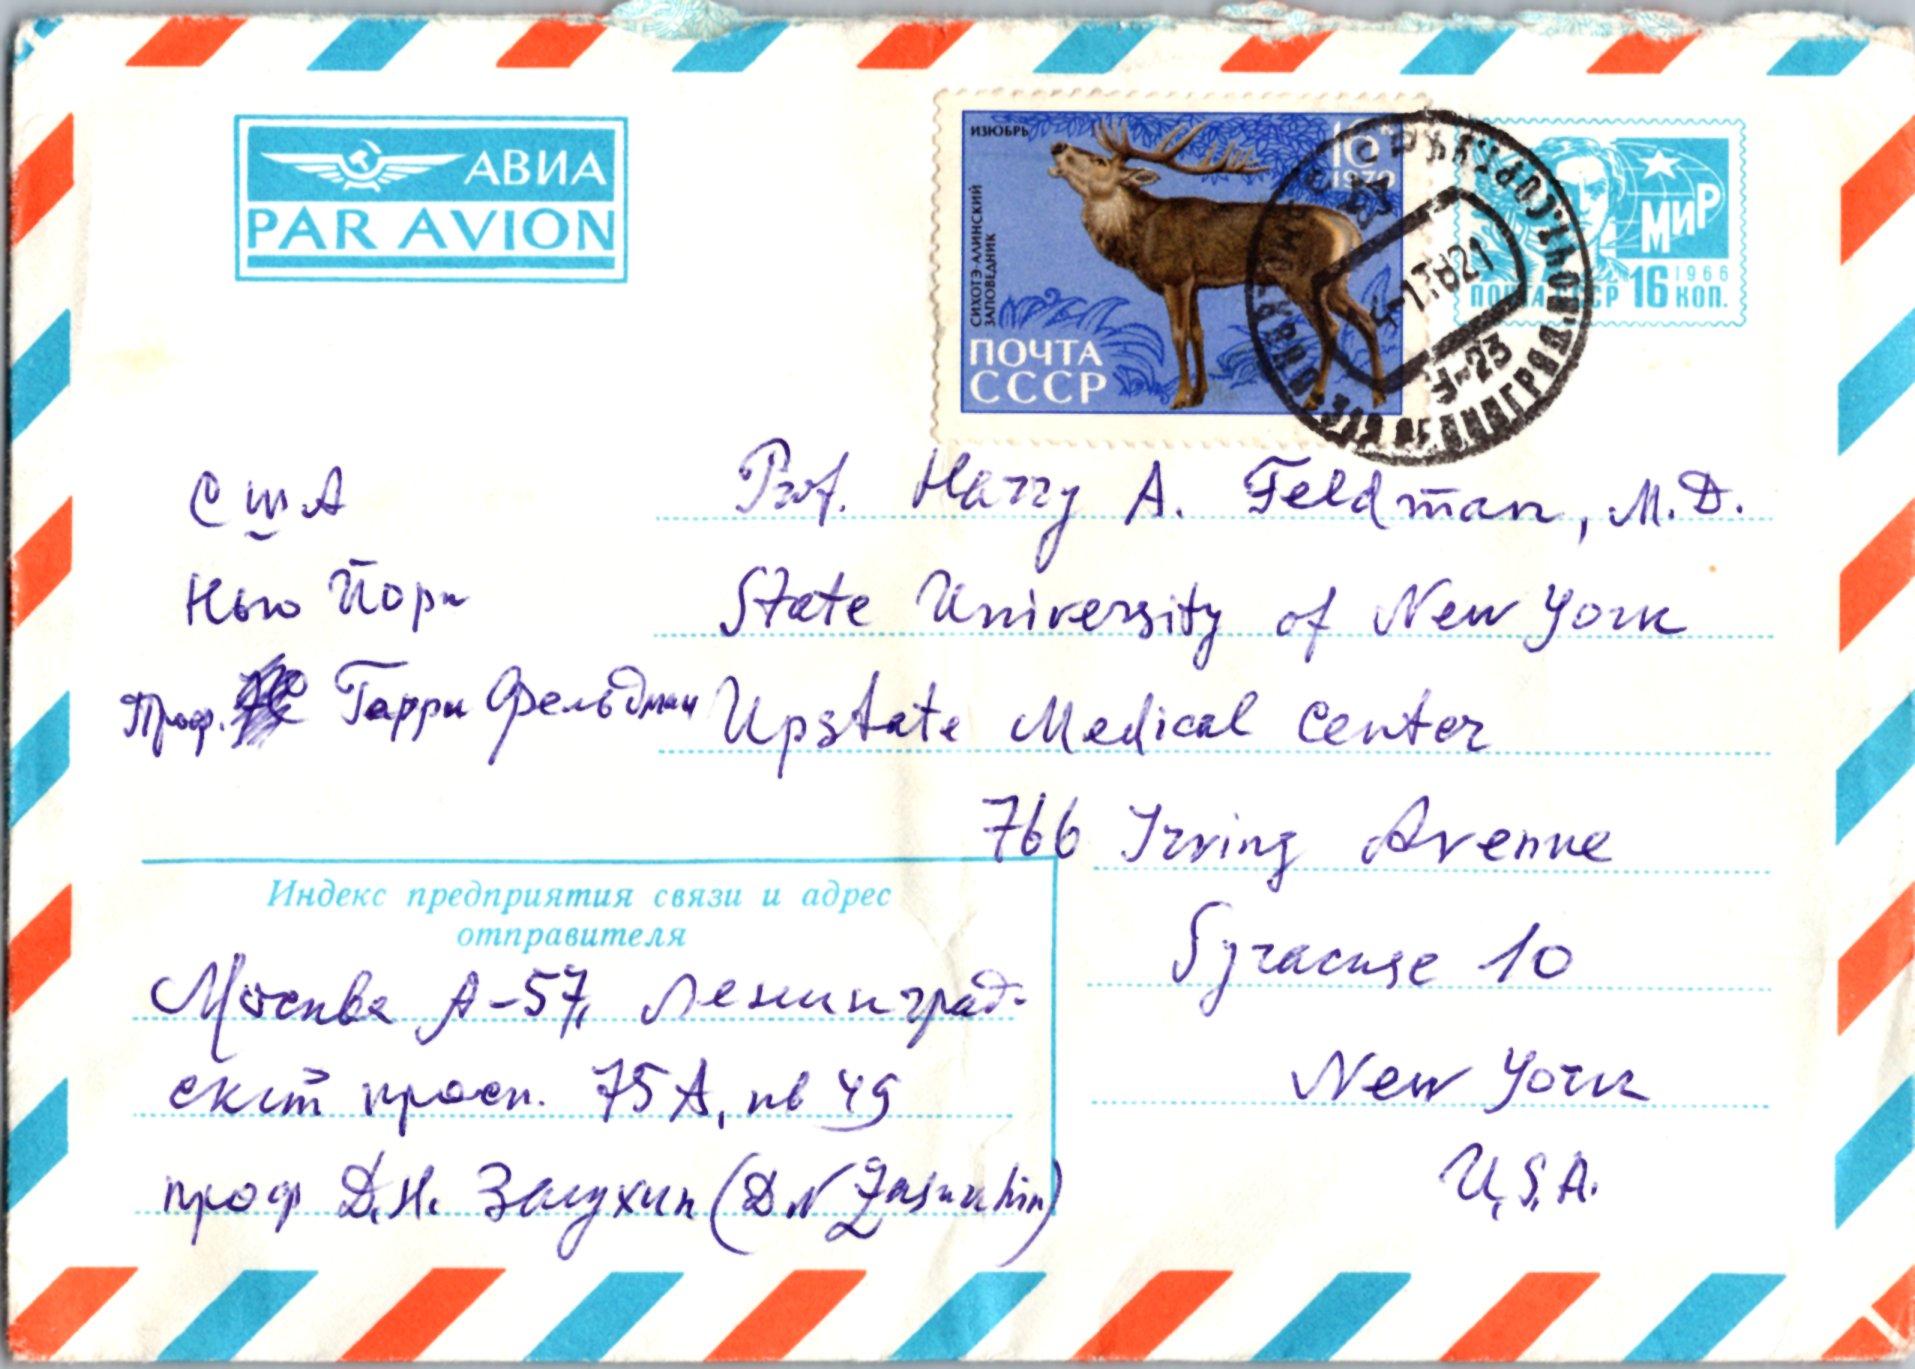 АВИА
PAR AVION
ИЗЮБРЬ
СИХОТЭ-АЛИНСКИЙ
ЗАПОВЕДНИК
10к
1970
ПОЧТА
СССР
МИР
1966
ПОЧТА СССР 16 КОП.
У-23
США
Нью Йорк
Проф. Гарри Фельдман
Prof. Harry A. Feldman, M.D.
State University of New York
Upstate Medical Center
766 Irving Avenue
Syracuse 10
New York
U.S.A.
Индекс предприятия связи и адрес
отправителя
Москва А-57, Ленинград-
ский просп. 75А, кв 49
проф Д.Н. Засухин (D N Zasukhin)